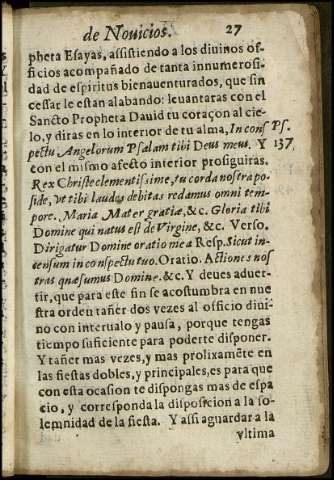 de Nouicios. 27
pheta Esayas, assistiendo a los diuinos of-
ficios acompañado de tanta innumerosi-
dad de espiritus bienauenturados, que sin
cessar le estan alabando: leuantaras con el
Sancto Propheta Dauid tu coraçon al cie-
lo, y diras en lo interior de tu alma, In cons Ps.
pectu Angelorum Psalam tibi Deus meus. Y 137.
con el mismo afecto interior prosiguiras.
Rex Christe clementissime, tu corda nostra pos-
side, vt tibi laudes debitas redamus omni tem-
pore. Maria Mater gratiæ, &c. Gloria tibi
Domine qui natus est de Virgine, &c. Verso.
Dirigatur Domine oratio mea Resp. Sicut in-
censum in conspectu tuo. Oratio. Actiones nos
tras quæsumus Domine. &c. Y deues aduer-
tir, que para este fin se acostumbra en nue
stra orden tañer dos vezes al officio diui-
no con interualo y pausa, porque tengas
tiempo suficiente para poderte disponer.
Y tañer mas vezes, y mas prolixamẽte en
las fiestas dobles, y principales, es para que
con esta ocasion te dispongas mas de espa
cio, y corresponda la disposicion a la so-
lemnidad de la fiesta. Y assi aguardar a la
vltima